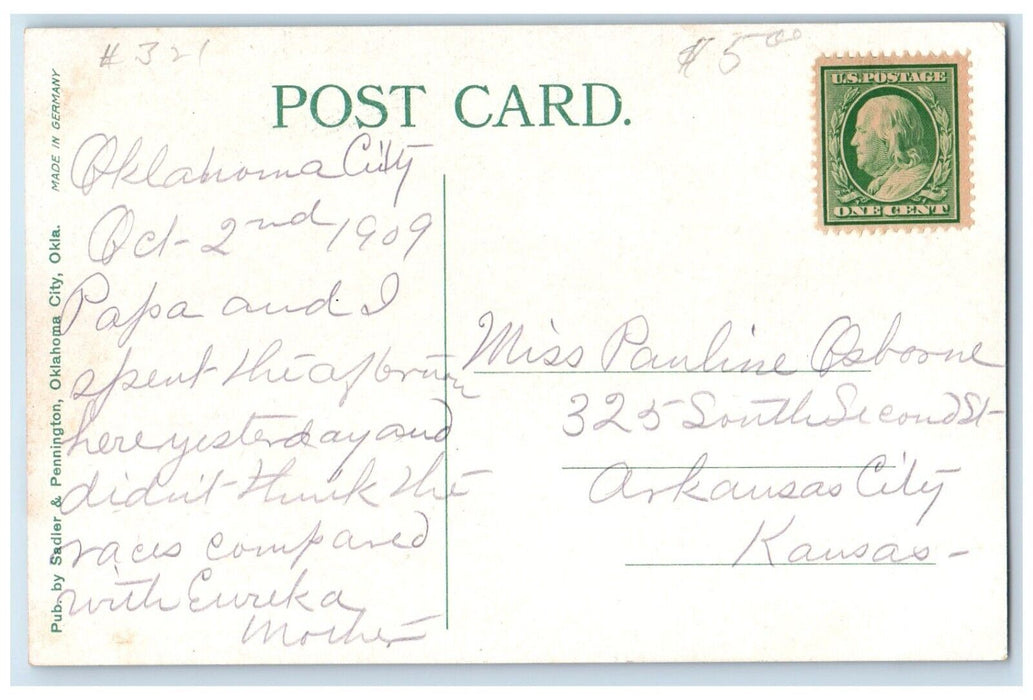 # 321
$5 00
POST CARD.
U.S. POSTAGE
ONE CENT
MADE IN GERMANY
Pub. by Sadler & Pennington, Oklahoma City, Okla.
Oklahoma City
Oct - 2nd 1909
Papa and I
spent the afternoon
here yesterday and
didn't think the
races compared
with Eureka
Mother
Miss Pauline Osborne
325 South Second St-
Arkansas City
Kansas -